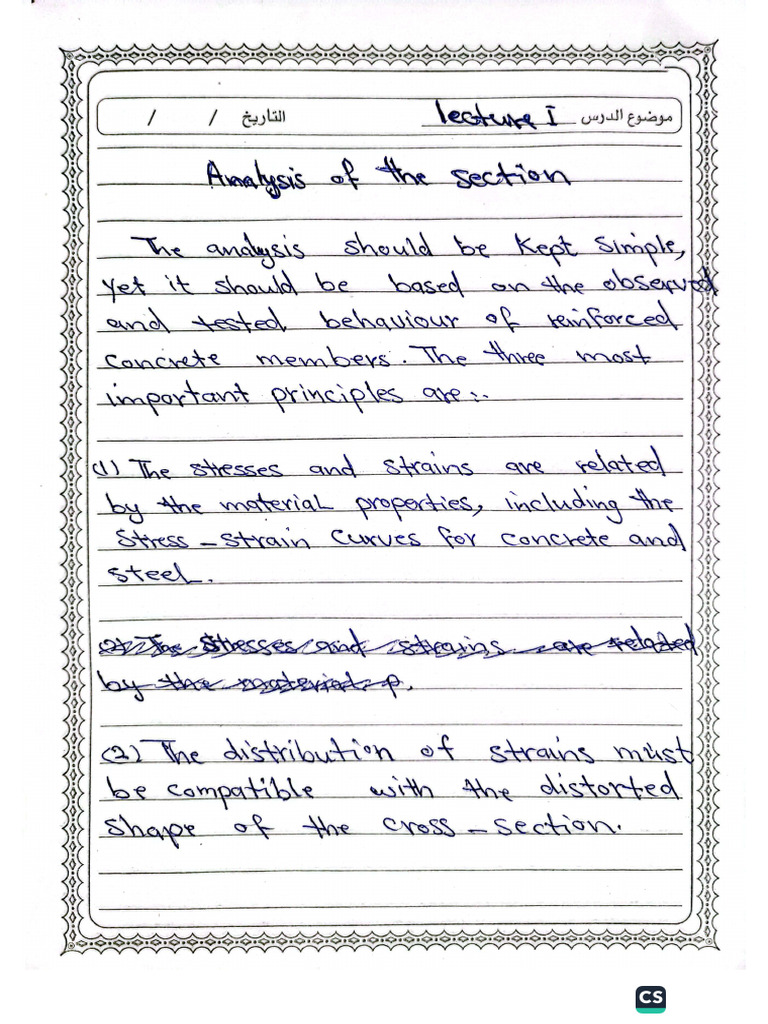 موضوع الدرس lecture I التاريخ / /
Analysis of the section
The analysis should be kept simple,
yet it should be based on the observed
and tested behaviour of reinforced
concrete members. The three most
important principles are:-
(1) The stresses and strains are related
by the material properties, including the
stress-strain curves for concrete and
steel.
(2) The stresses and strains are related
by the material p.
(2) The distribution of strains must
be compatible with the distorted
shape of the cross-section.
CS